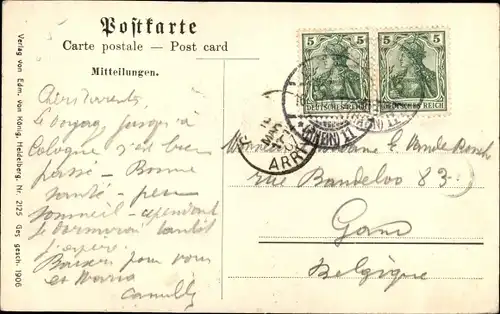 Postkarte
Carte postale — Post card
Mitteilungen.
Le voyage jusqu'à
Cologne s'est bien
passé - Bonne
santé - peu
sommeil - cependant
je dormirai tantôt
j'espère.
Baisers pour vous
et Maria
Camille
5 5
5 5
DEUTSCHES REICH
DEUTSCHES REICH
ARRI
Monsieur Madame E. Vande
rue Bandeloo 83
Gand
Belgique
Verlag von Edm. von König, Heidelberg. Nr. 2125 Ges. gesch. 1906